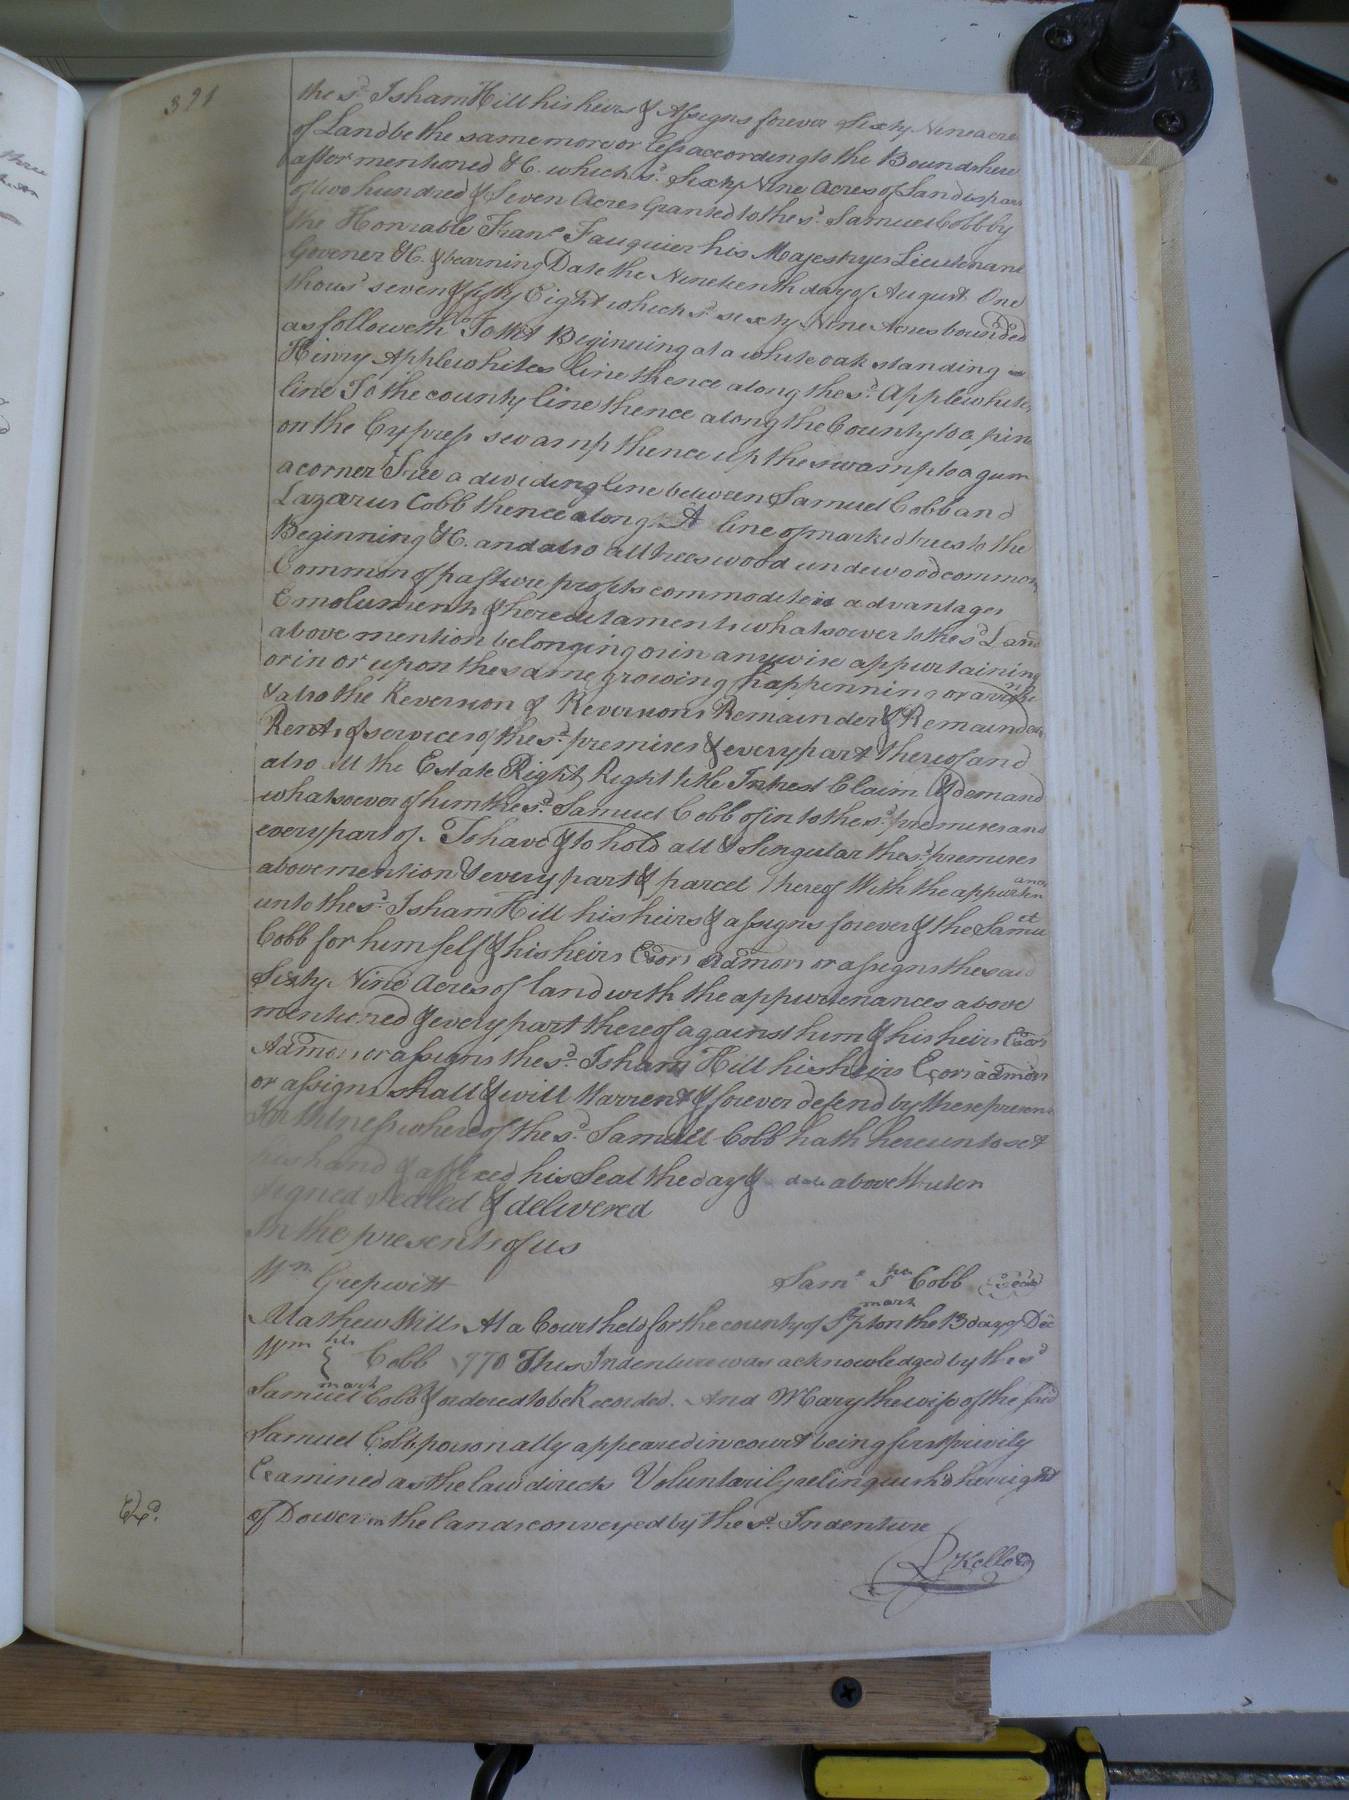 391
the sd. Isham Hill his heirs & Assigns forever Sixty Nine acres
of Land be the same more or less according to the Bounds here
after mentioned &C. which sd. Sixty Nine Acres of Land is part
of two hundred & Seven Acres Granted to the sd. Samuel Cobb by
the Honrable Frans Fauquier his Majestyes Lieutenant
Govener &C. & bearning Date the Nineteenth day of August One
thousd seven & fifty Eight which sd. sixty Nine Acres bounded
as followeth To Wit Beginning at a white oak standing
Henry Applewhites line thence along the sd. Applewhites
line To the county line thence along the County to a pine
on the Cypress swamp thence up the swamp to a gum
a corner Tree a dividing line between Samuel Cobb and
Lazarus Cobb thence along A line of marked trees to the
Beginning &C. and also all trees wood undewood common
Common of pasture profits commodeteis advantages
Emoluments & heredetaments whatsoever to the sd Land
above mention belonging or in anywise appurtaining
or in or upon the same growing happinning or
& also the Reversion & Reversions Remainder & Remainders
Rents & services of the sd. premises & every part thereof and
also all the Estate Right Right title Intrest Claim & demand
whatsoever of him the sd. Samuel Cobb of in to the sd. premises and
every part of. To have & to hold all & Singular the sd. premises
above mention & every part & parcel thereof With the appurtenances
unto the sd. Isham Hill his heirs & assigns forever & the Samuel
Cobb for himself & his heirs Exors Admors or assigns the said
Sixty Nine Acres of land with the appurtenances above
mentioned & every part thereof against him & his heirs Exors
Admors or assigns the sd. Isham Hill his heirs Exors admors
or assigns shall & will Warrent & forever defend by these presents
In Witness whereof the sd. Samuell Cobb hath hereunto set
his hand & affixed his Seal the day & date above Written
Signed Sealed & delivered
In the presents of us
Wm Grepwitt Saml S his Cobb Seal
mark
Mathew Wills At a Court held for the county of Spton the 13 day of Dec
Wm his Cobb 1770 This Indenture was acknowledged by the sd
mark
Samuel Cobb & ordered to be Recorded. And Mary the wife of the said
Samuel Cobb personally appeared in court being first privily
Examined as the law directs Voluntarily relinguish'd her right
of Dower in the lands conveyed by the sd. Indenture
Exd.
R Kello